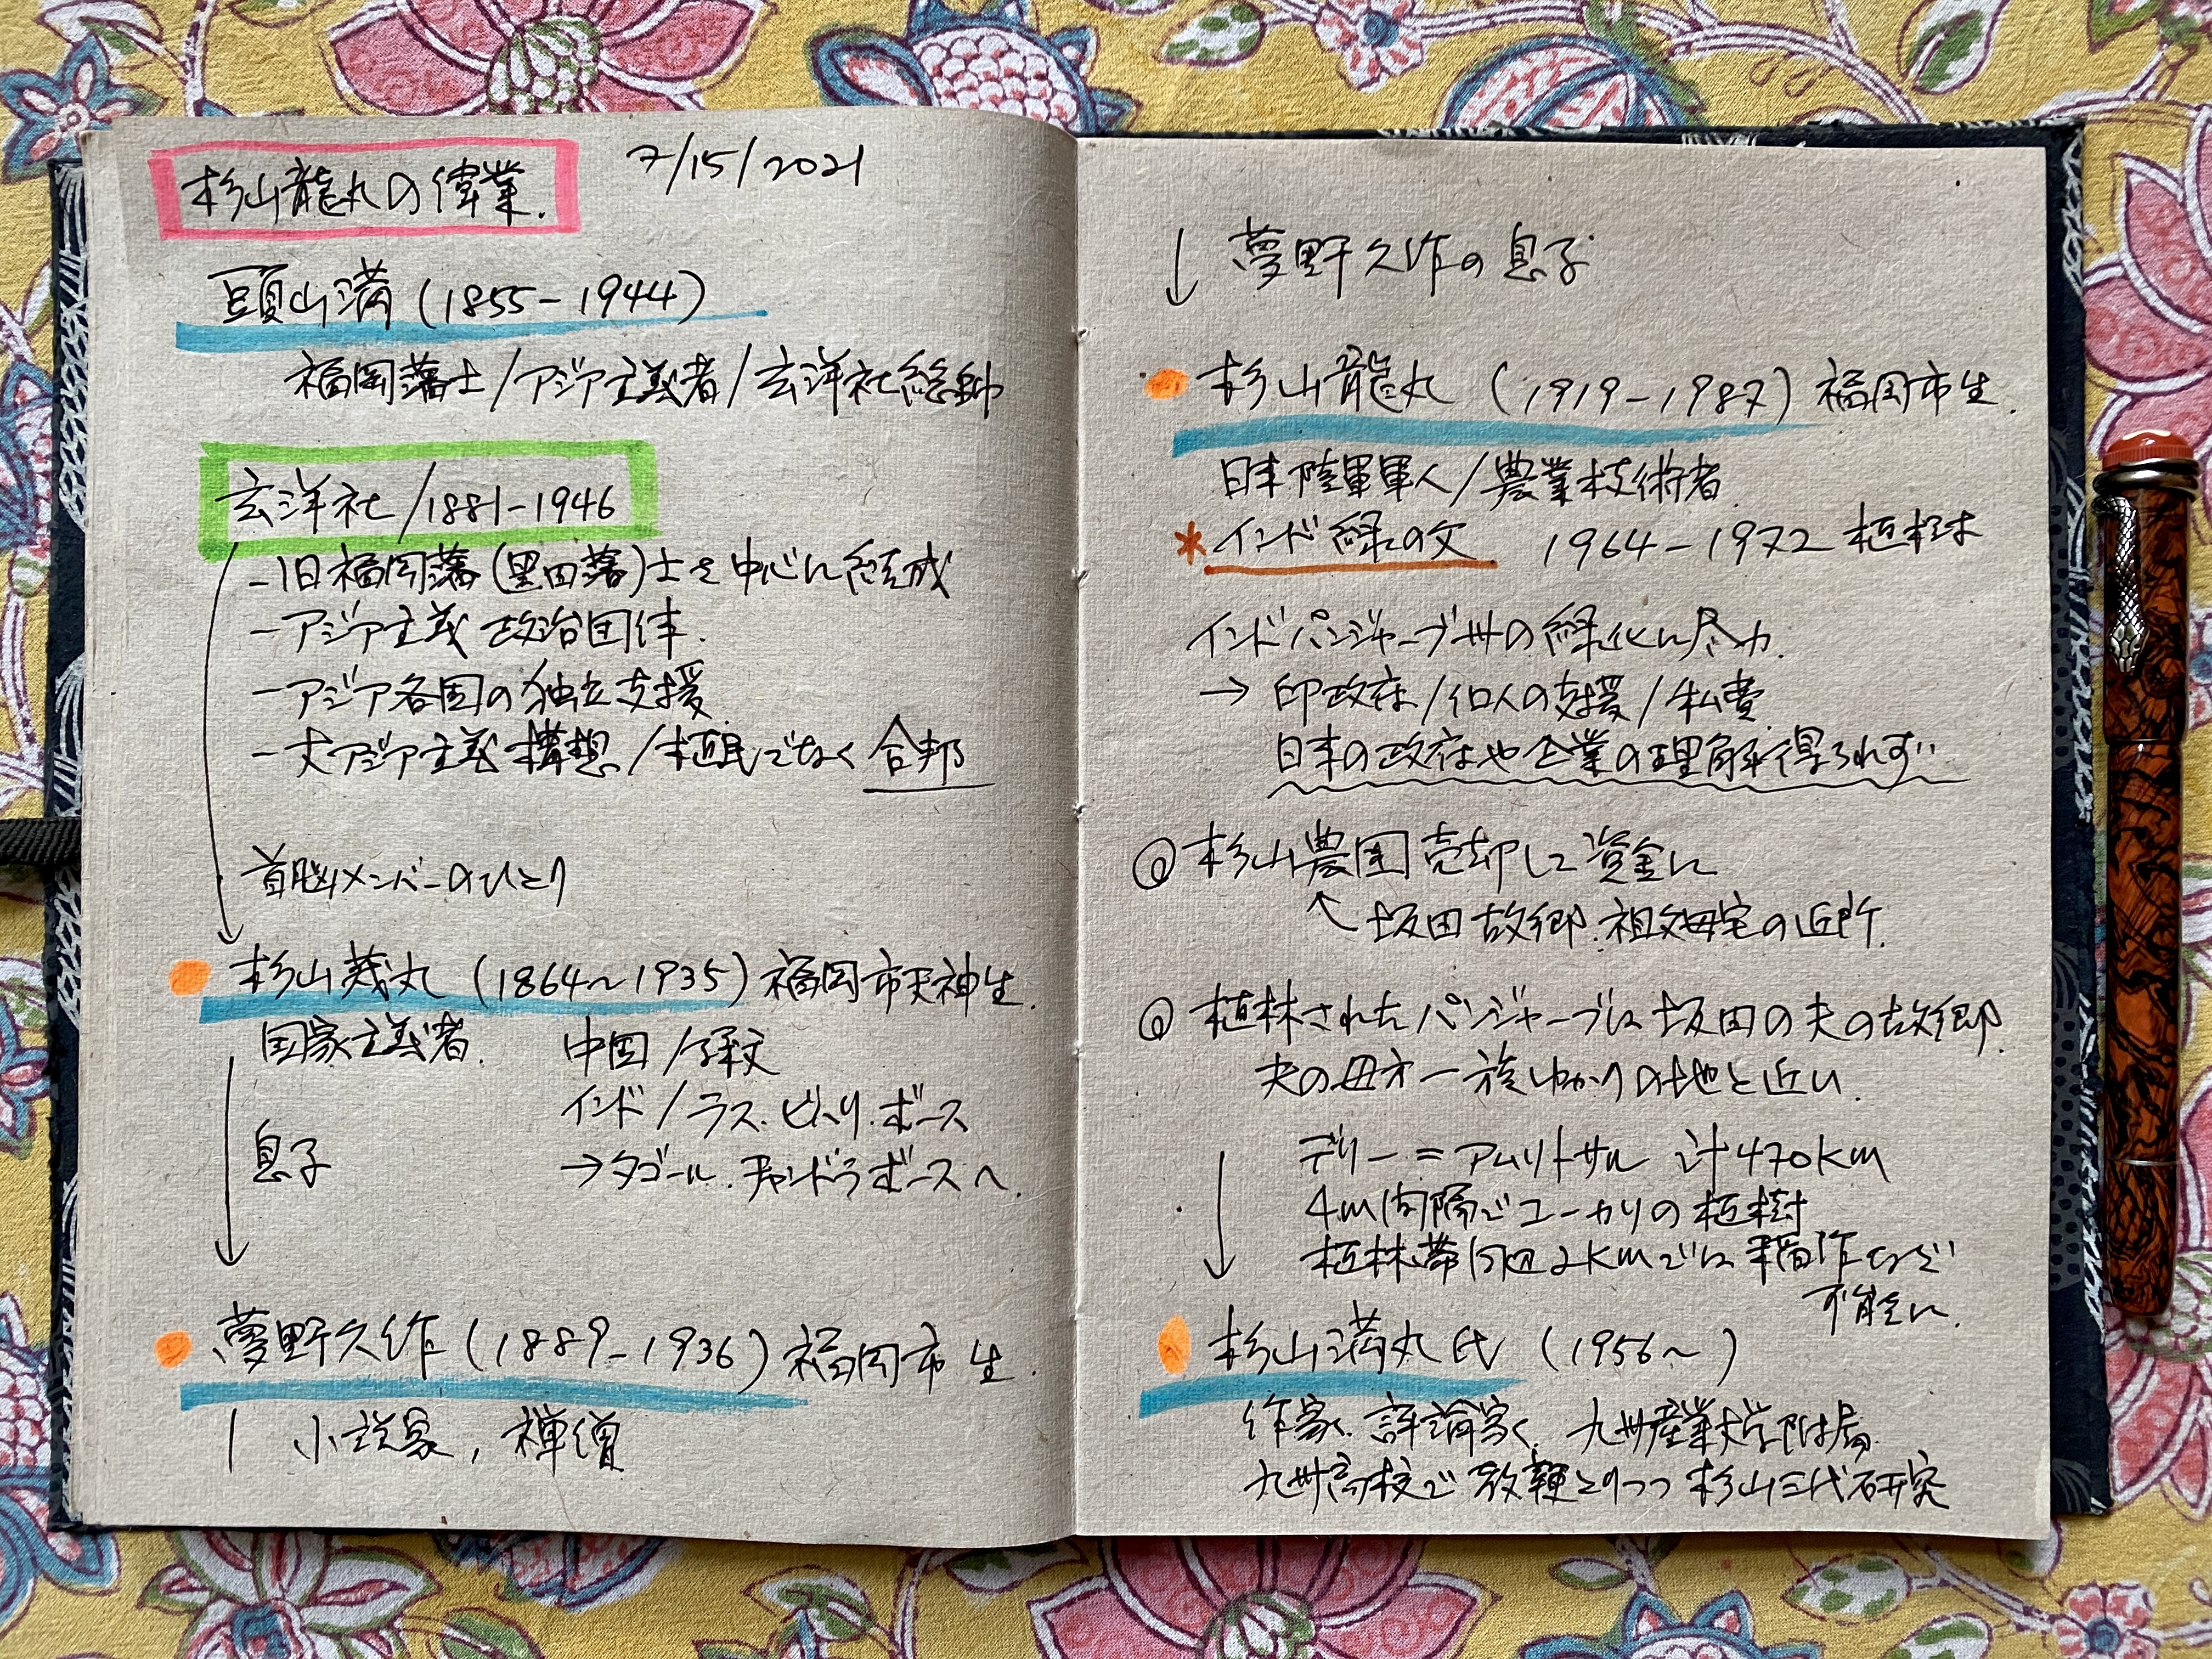 杉山龍丸の偉業. 7/15/2021
頭山満 (1855-1944)
福岡藩士/アジア主義者/玄洋社総帥
玄洋社/1881-1946
-旧福岡藩(黒田藩)士を中心に結成
-アジア主義 政治団体.
-アジア各国の独立支援
-大アジア主義構想/植民でなく合邦
首脳メンバーのひとり
杉山茂丸 (1864~1935) 福岡市天神生.
国家主義者. 中国/孫文
インド/ラス.ビハリ.ボース
→タゴール.チャンドラボースへ.
息子
夢野久作 (1889-1936) 福岡市生.
小説家, 禅僧
↓ 夢野久作の息子
杉山龍丸 (1919-1987) 福岡市生.
日本陸軍軍人/農業技術者
*インド緑の父 1964-1972 植林
インドパンジャーブ州の緑化に尽力.
→ 印政府/個人の支援/私費
日本の政府や企業の理解得られず
◎杉山農園売却して資金に
↖坂田故郷.祖父母宅の近所.
◎植林されたパンジャーブは坂田の夫の故郷.
夫の母方一族ゆかりの地と近い.
デリー=アムリトサル 計470km
4m間隔でユーカリの植樹
植林帯周辺2kmでは稲作など
可能に.
杉山満丸氏 (1956~ )
作家.評論家. 九州産業大学附属
九州高校で教鞭とりつつ杉山三代研究